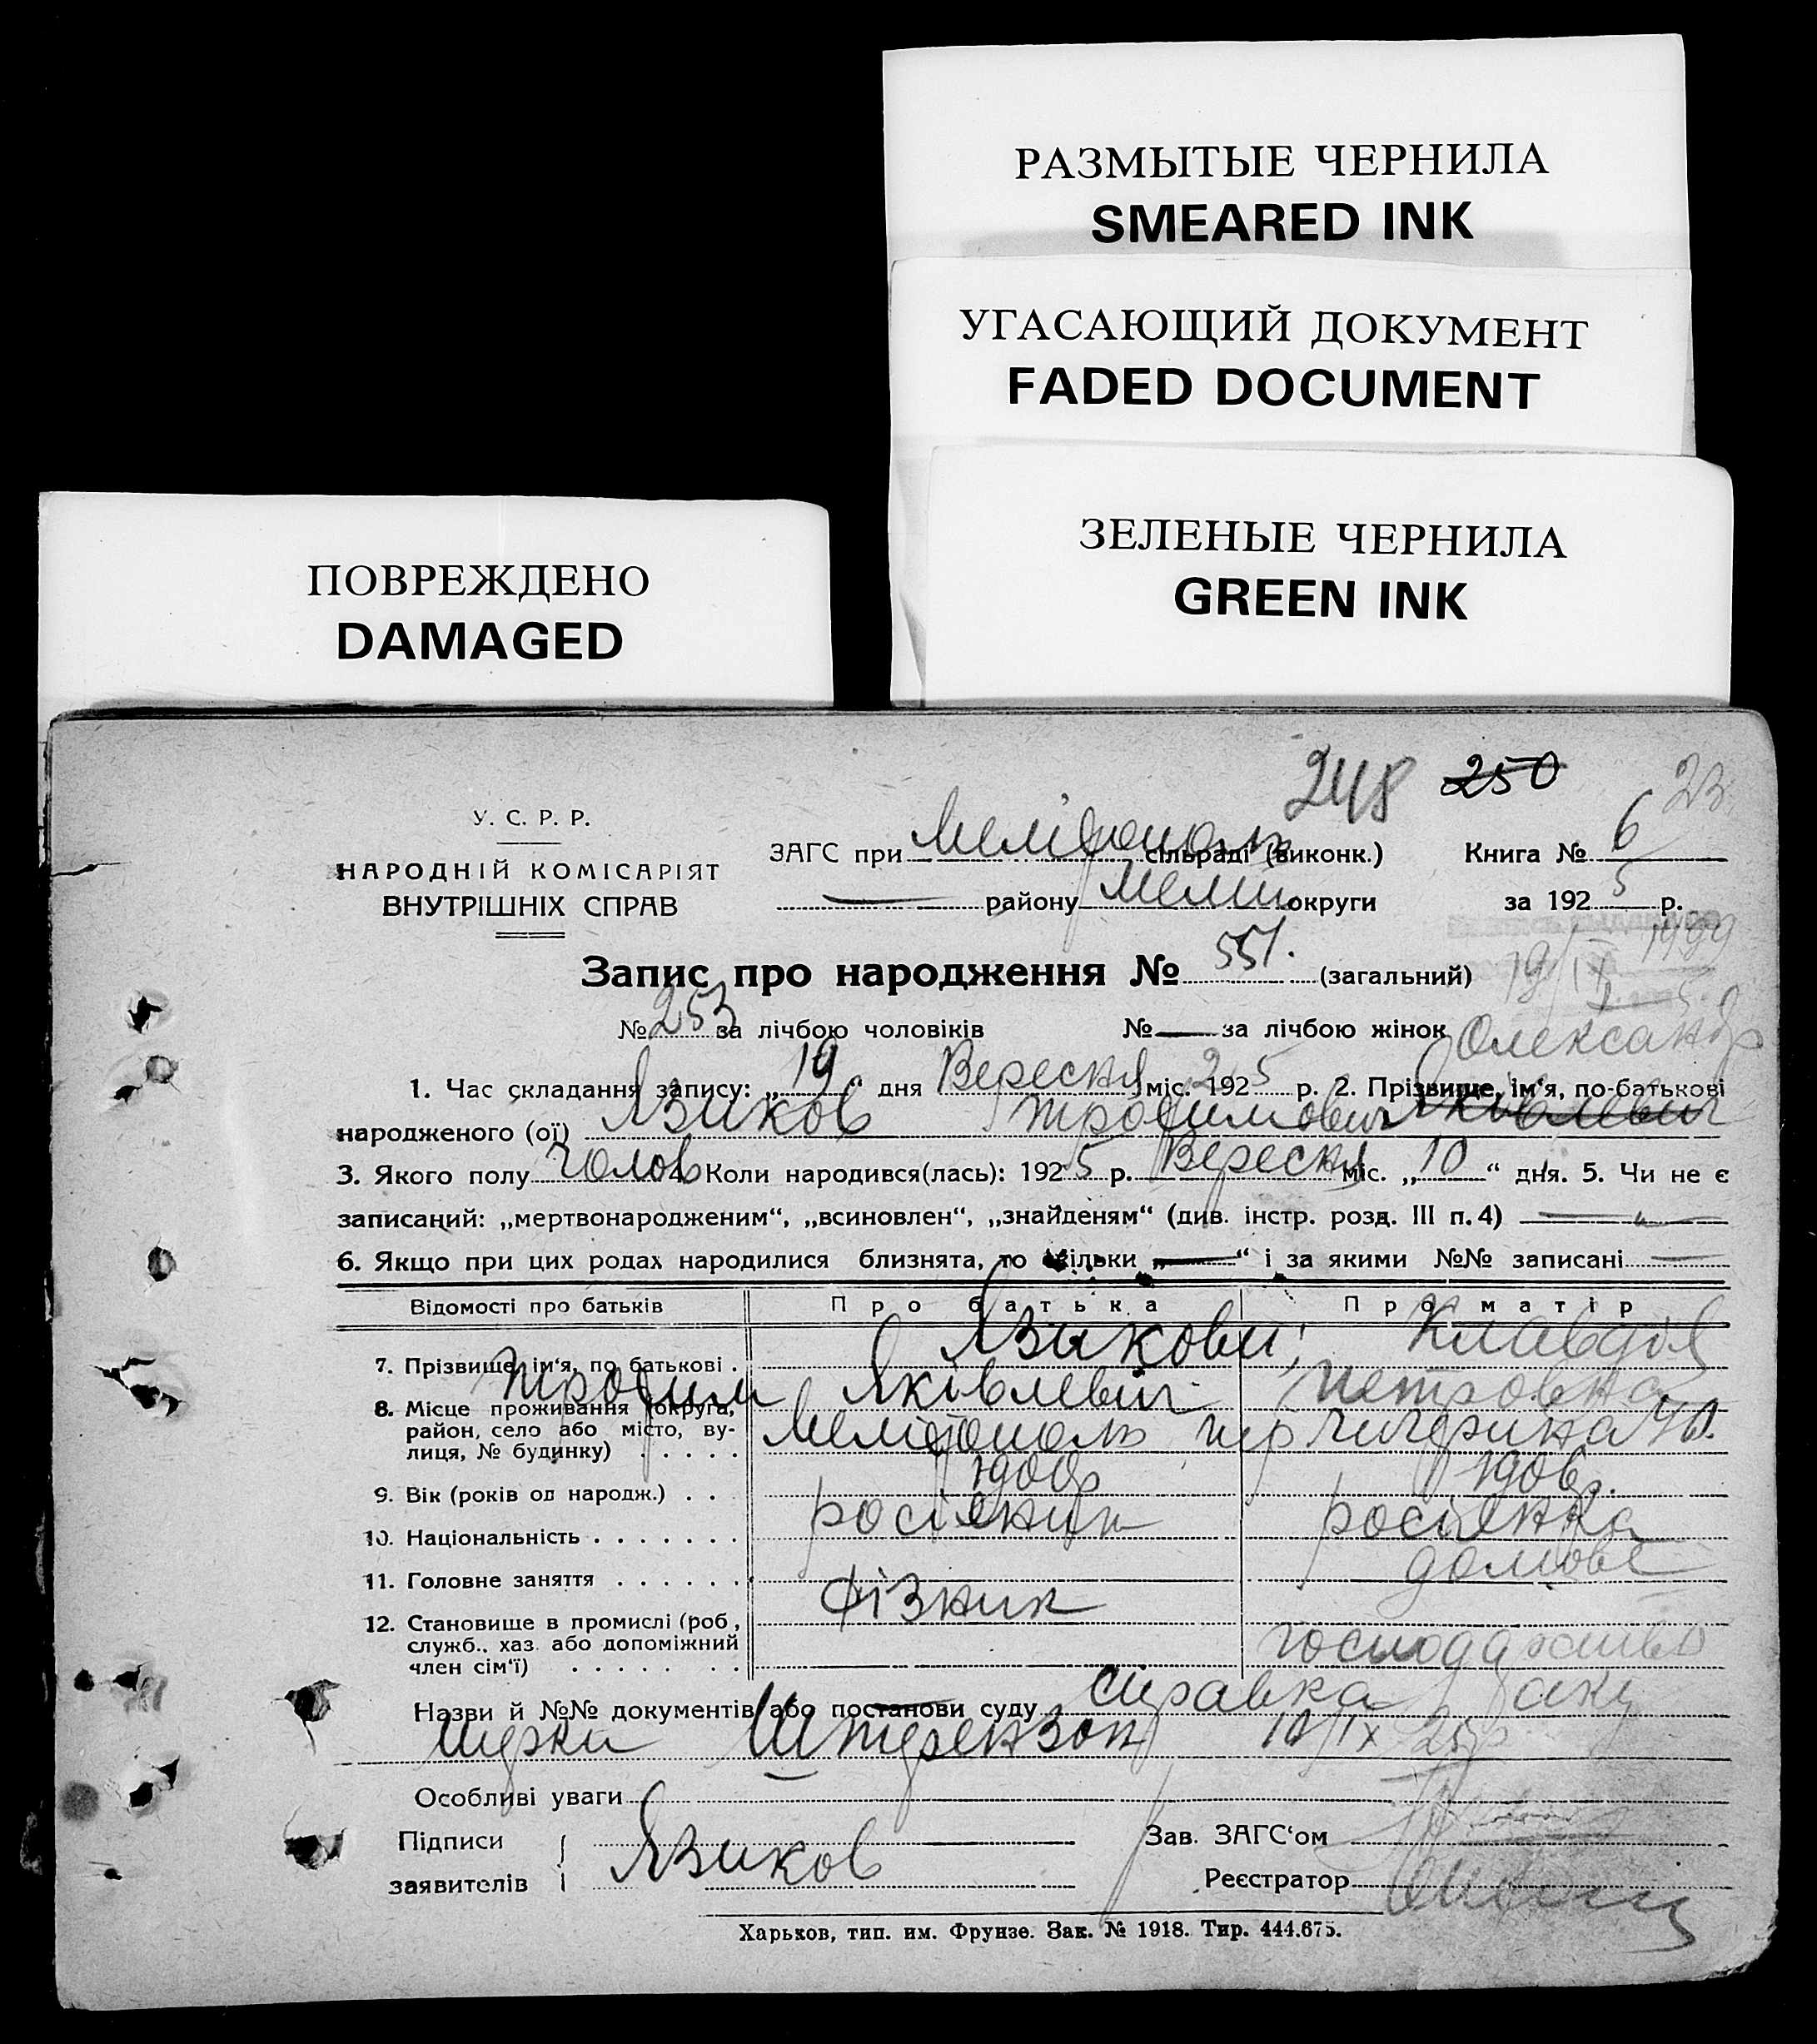 РАЗМЫТЫЕ ЧЕРНИЛА
SMEARED INK
УГАСАЮЩИЙ ДОКУМЕНТ
FADED DOCUMENT
ЗЕЛЕНЫЕ ЧЕРНИЛА
GREEN INK
ПОВРЕЖДЕНО
DAMAGED
248 250 23
У. С. Р. Р.
НАРОДНІЙ КОМІСАРІЯТ
ВНУТРІШНІХ СПРАВ
ЗАГС при Мелітополь сільраді (виконк.) Книга № 6
району Мелит округи за 1925 р.
Запис про народження № 551. (загальний)
№ 253 за лічбою чоловіків № — за лічбою жінок Олександр
1. Час складання запису: „19“ дня Вересня міс. 1925 р. 2. Прізвище, ім'я, по-батькові
народженого (ої) Язиков Трофимович Яківлевич
3. Якого полу Чолов 4. Коли народився(лась): 1925 р. Вересня міс. „10“ дня. 5. Чи не є
записаний: „мертвонародженим“, „всиновлен“, „знайденям“ (див. інстр. розд. III п. 4) —„—
6. Якщо при цих родах народилися близнята, то скільки „—“ і за якими №№ записані —
Відомості про батьків Про батька Про матір
7. Прізвище, ім'я, по батькові . Язикови; Клавдія
Трофим Яківлевіч Петровна
8. Місце проживання (округа, район, село або місто, вулиця, № будинку) . . . . . Мелітополь пер Чичерина 40.
9. Вік (років од народж.) . . 1900р 1906р.
10. Національність . . . . . . . росіянин росіянка
11. Головне заняття . . . . . . Фізник домове
12. Становище в промислі (роб, служб., хаз. або допоміжний член сім'ї) . . . . . . . господарство
Назви й №№ документів або постанови суду Справка аку
шерки Штерензон 10/IX 25р
Особливі уваги
Підписи заявителів Язиков
Зав. ЗАГС'ом
Реєстратор
Харьков, тип. им. Фрунзе. Зак. № 1918. Тир. 444.675.